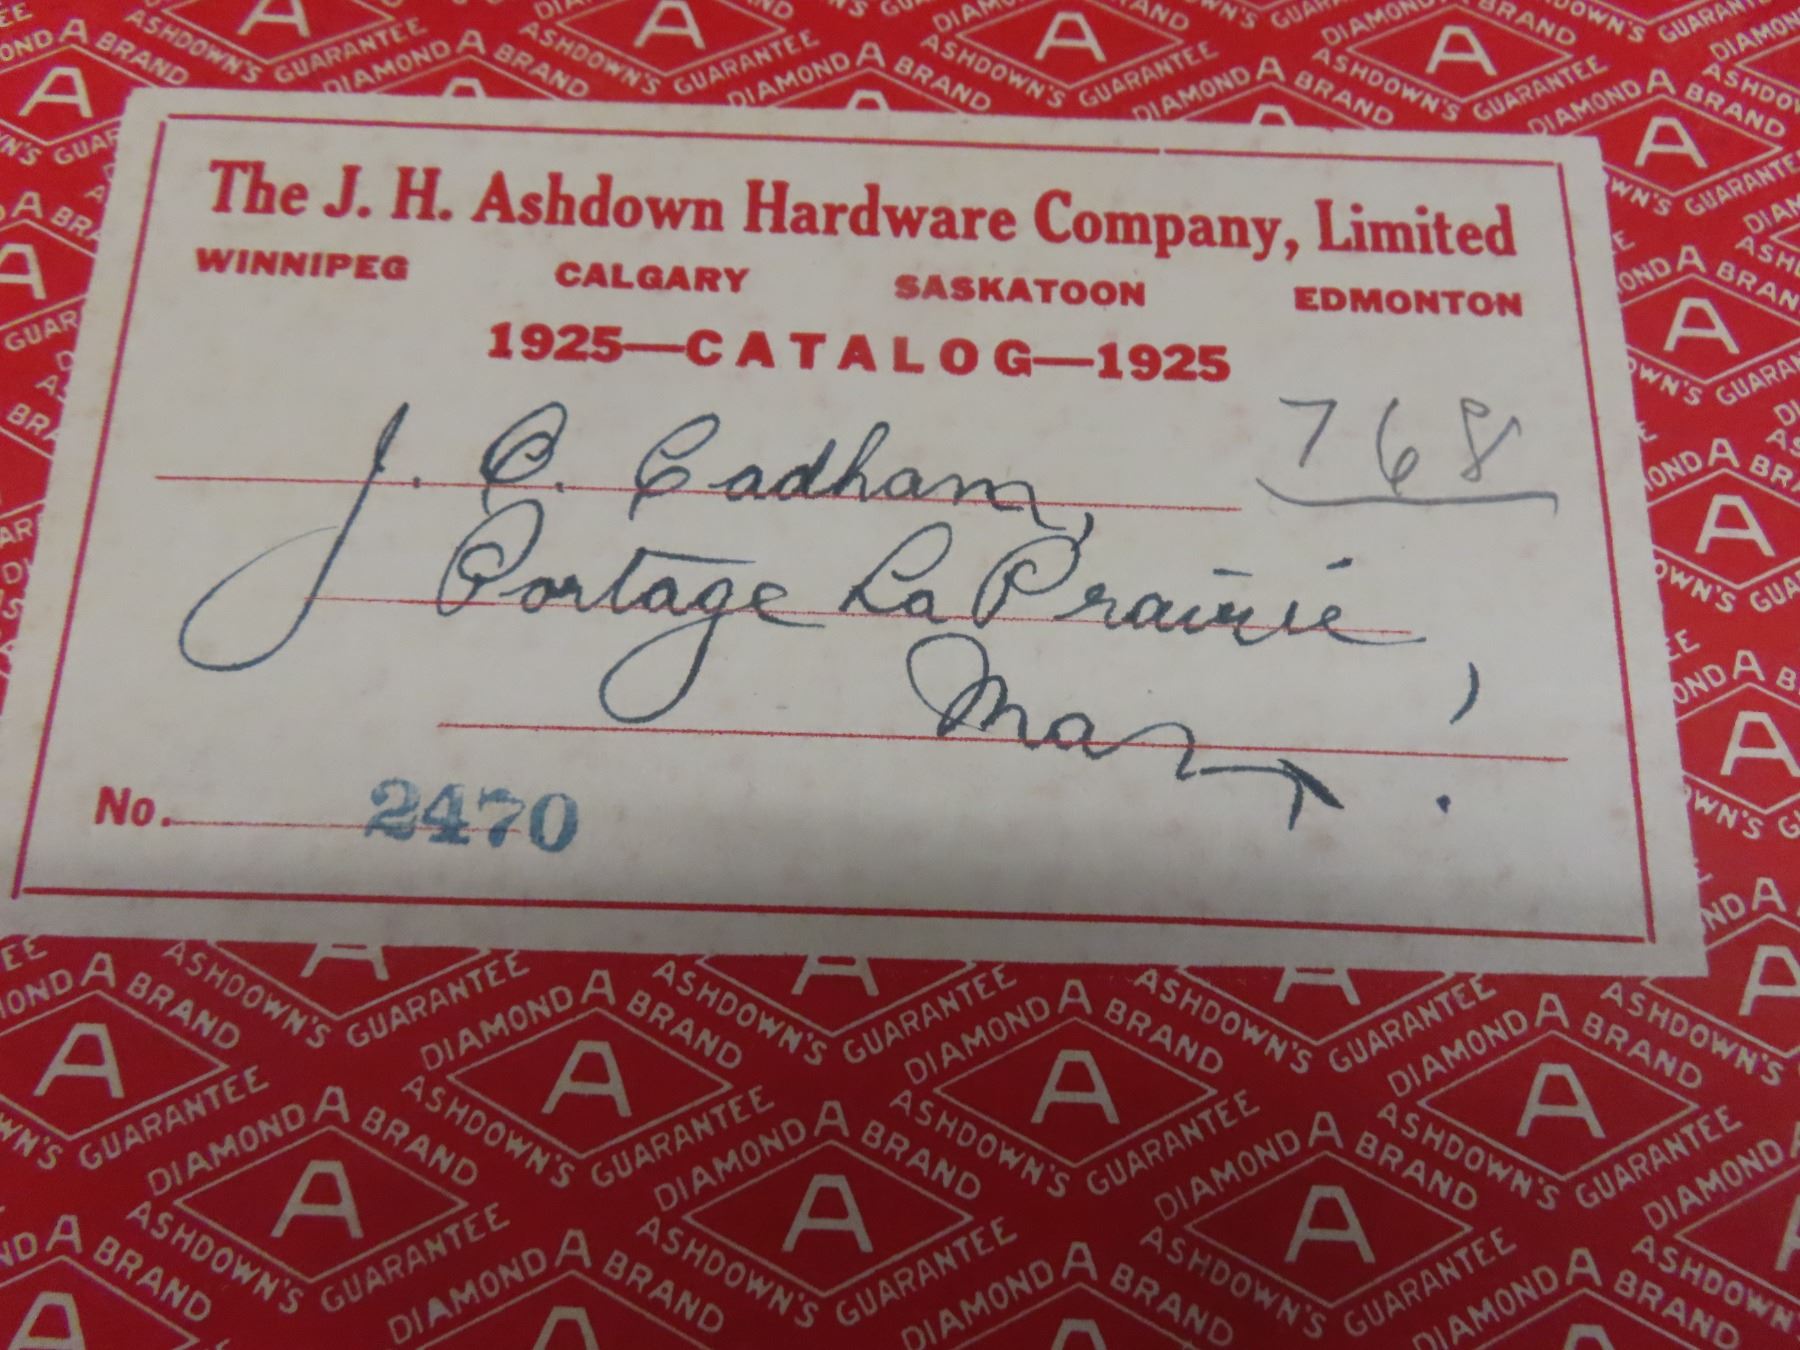 The J. H. Ashdown Hardware Company, Limited
WINNIPEG CALGARY SASKATOON EDMONTON
1925—CATALOG—1925
768
J. C. Cadham,
Portage La Prairie,
Man.
No. 2470
DIAMOND A BRAND
A
ASHDOWN'S GUARANTEE